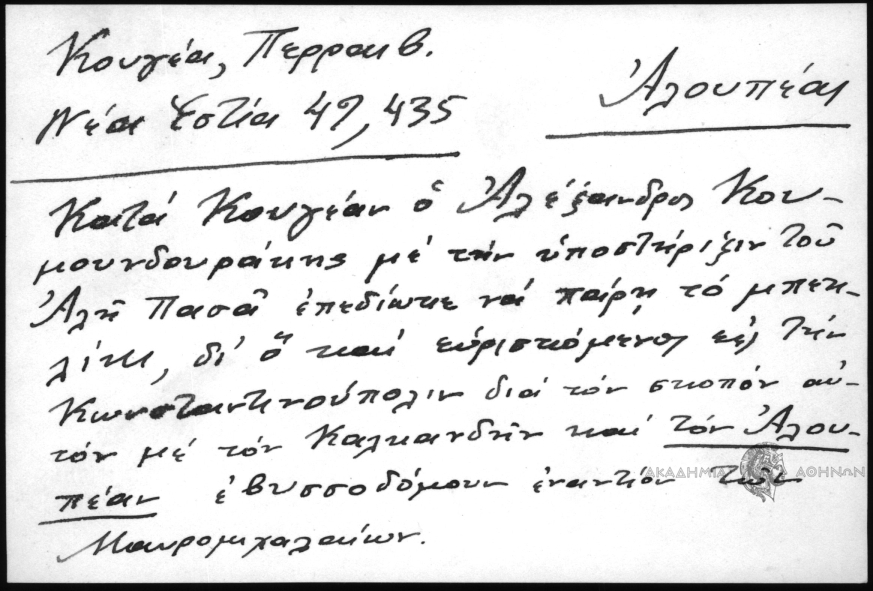 Κουγέα, Περραιβ.
Νέα Ἑστία 47, 435
Ἀλουπέας
Κατά Κουγέαν ὁ Ἀλέξανδρος Κου-
μουνδουράκης μέ τήν ὑποστήριξιν τοῦ
Ἀλῆ Πασᾶ ἐπεδίωκε νά πάρη τό μπεη-
λίκι, δι' ὅ καί εὑρισκόμενος εἰς τήν
Κωνσταντινούπολιν διά τόν σκοπόν αὐ-
τόν μέ τόν Καλκανδῆν καί τόν Ἀλου-
πέαν ἐβυσσοδόμουν ἐναντίον τῶν
Μαυρομιχαλαίων.
ΑΚΑΔΗΜΙΑ ΑΘΗΝΩΝ